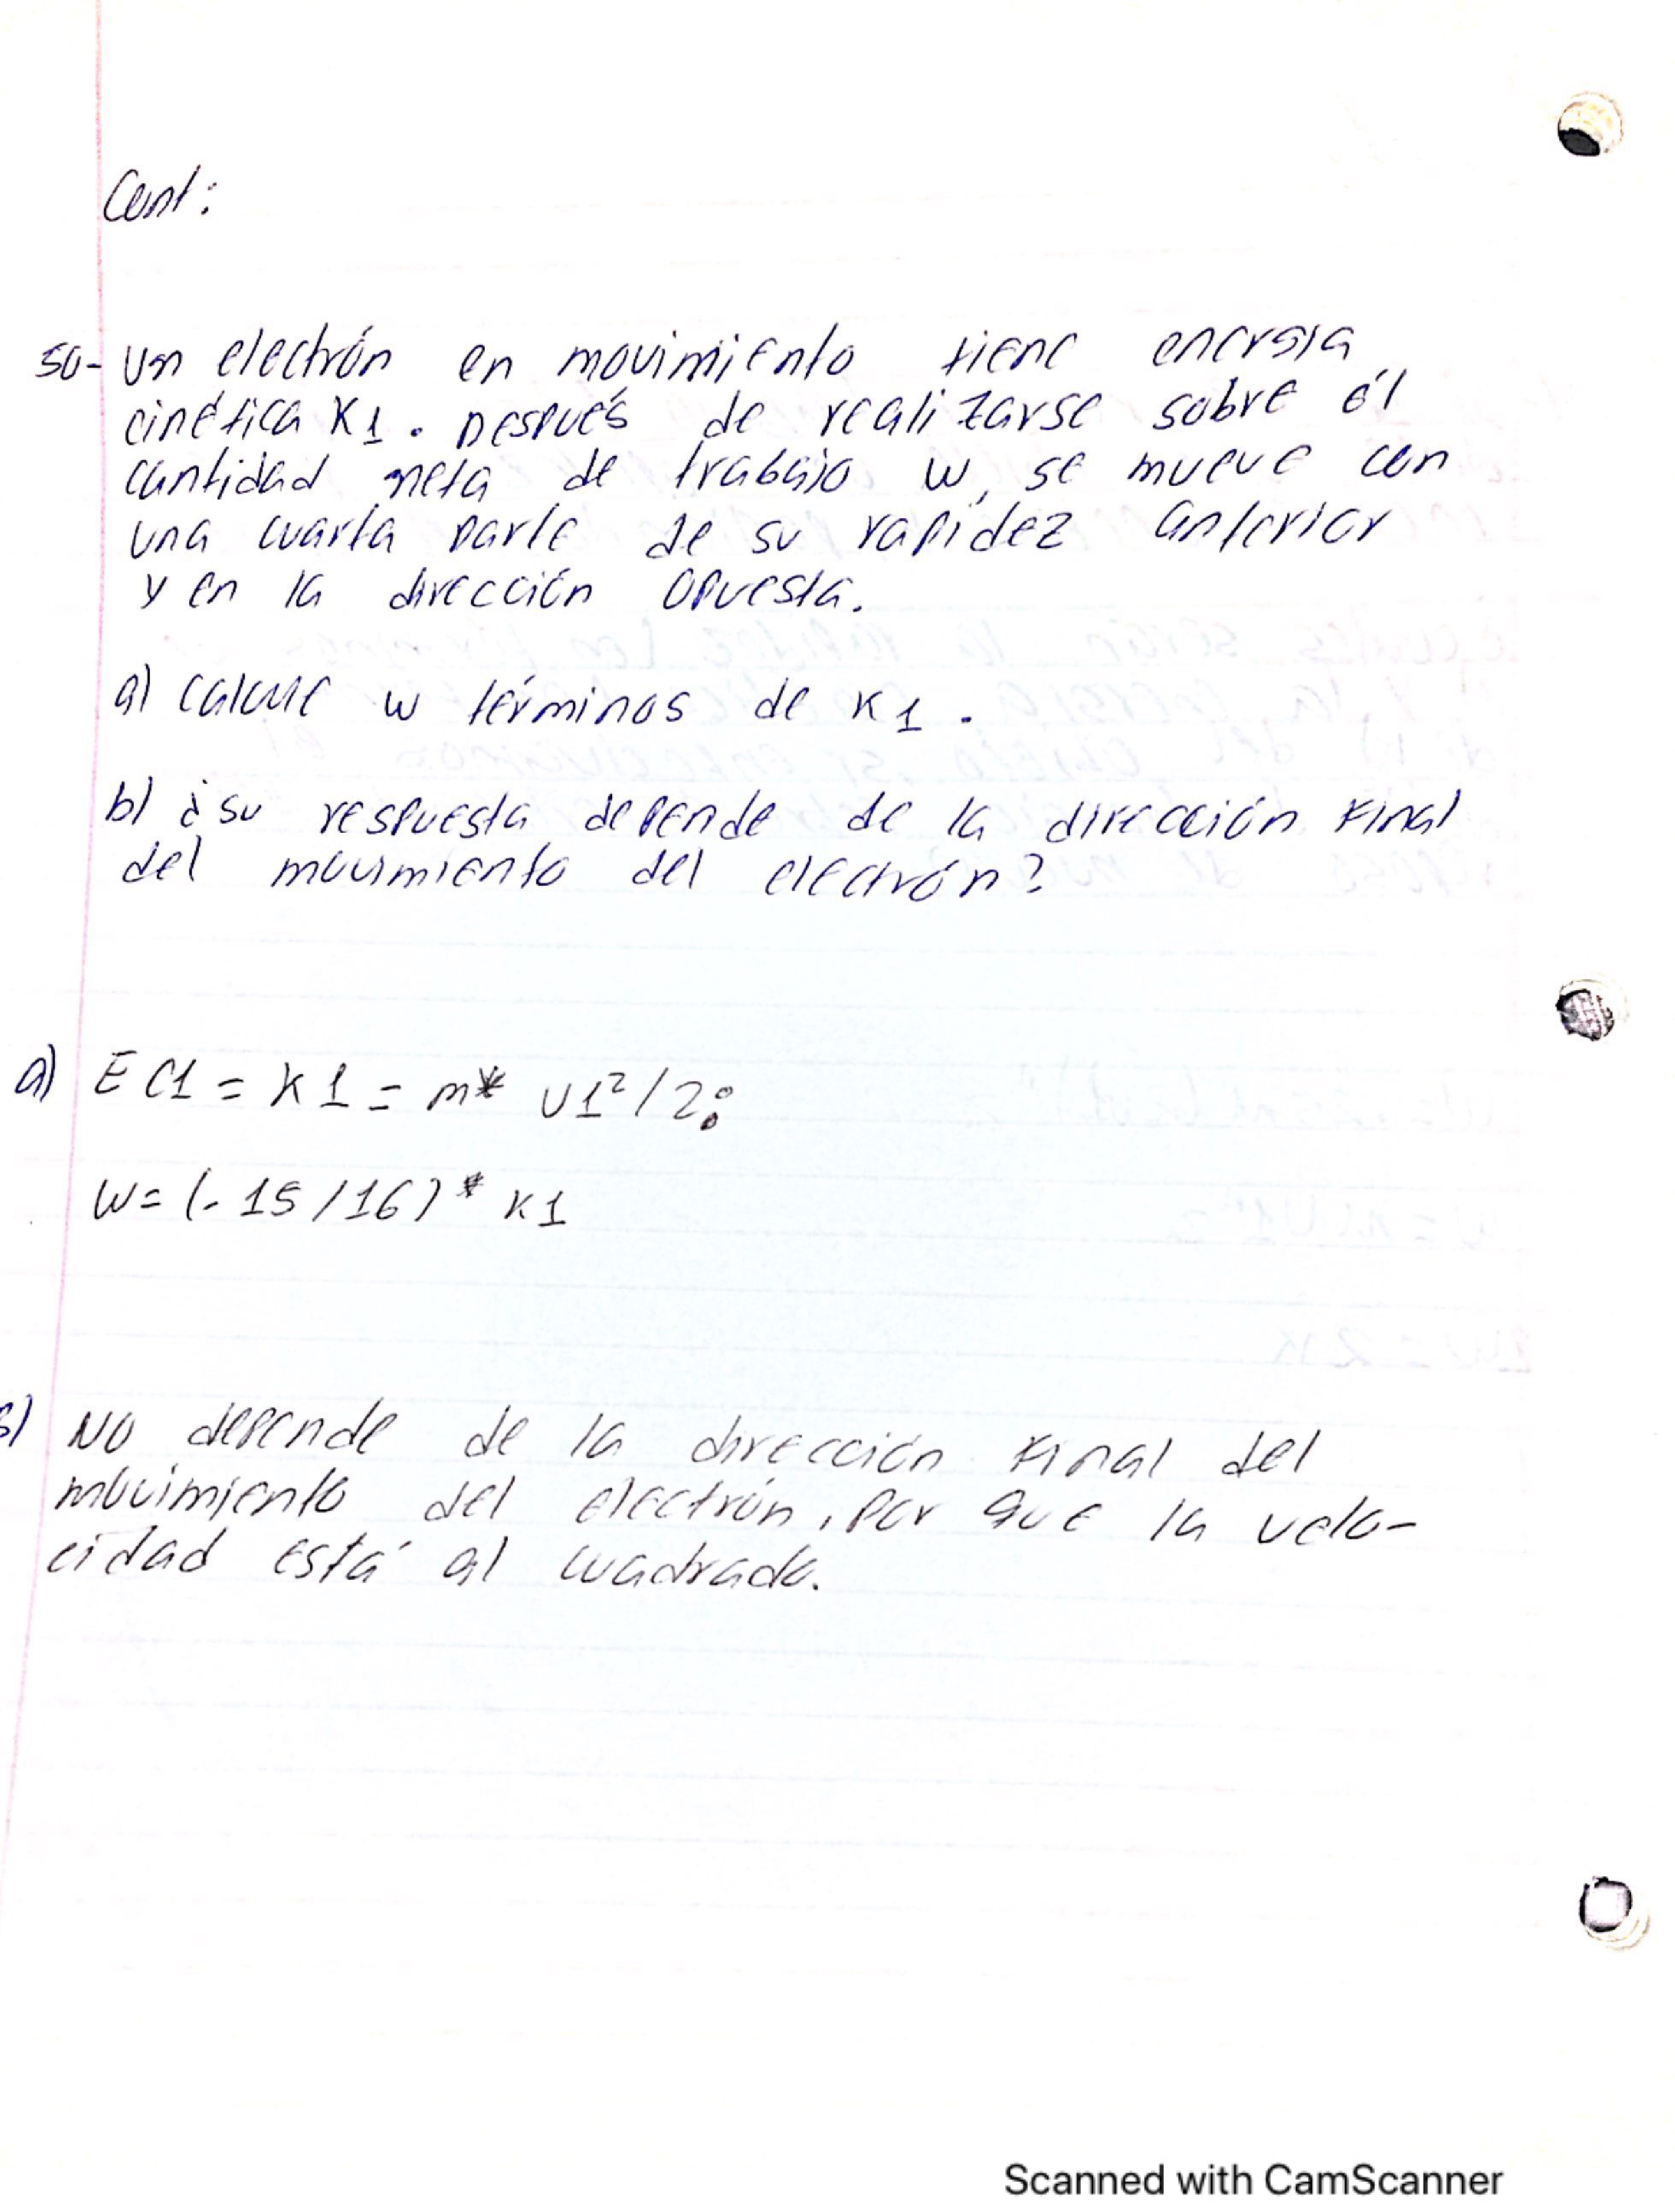 Cont:
50- Un electrón en movimiento tiene energía
cinética K1. Después de realizarse sobre él
cantidad neta de trabajo W, se mueve con
una cuarta parte de su rapidez anterior
y en la dirección opuesta.
a) calcule W términos de K1.
b) ¿su respuesta depende de la dirección final
del movimiento del electrón?
a) EC1 = K1 = m* V1²/2;
W=(-15/16)* K1
b) NO depende de la dirección final del
movimiento del electrón, por que la velo-
cidad está al cuadrado.
Scanned with CamScanner